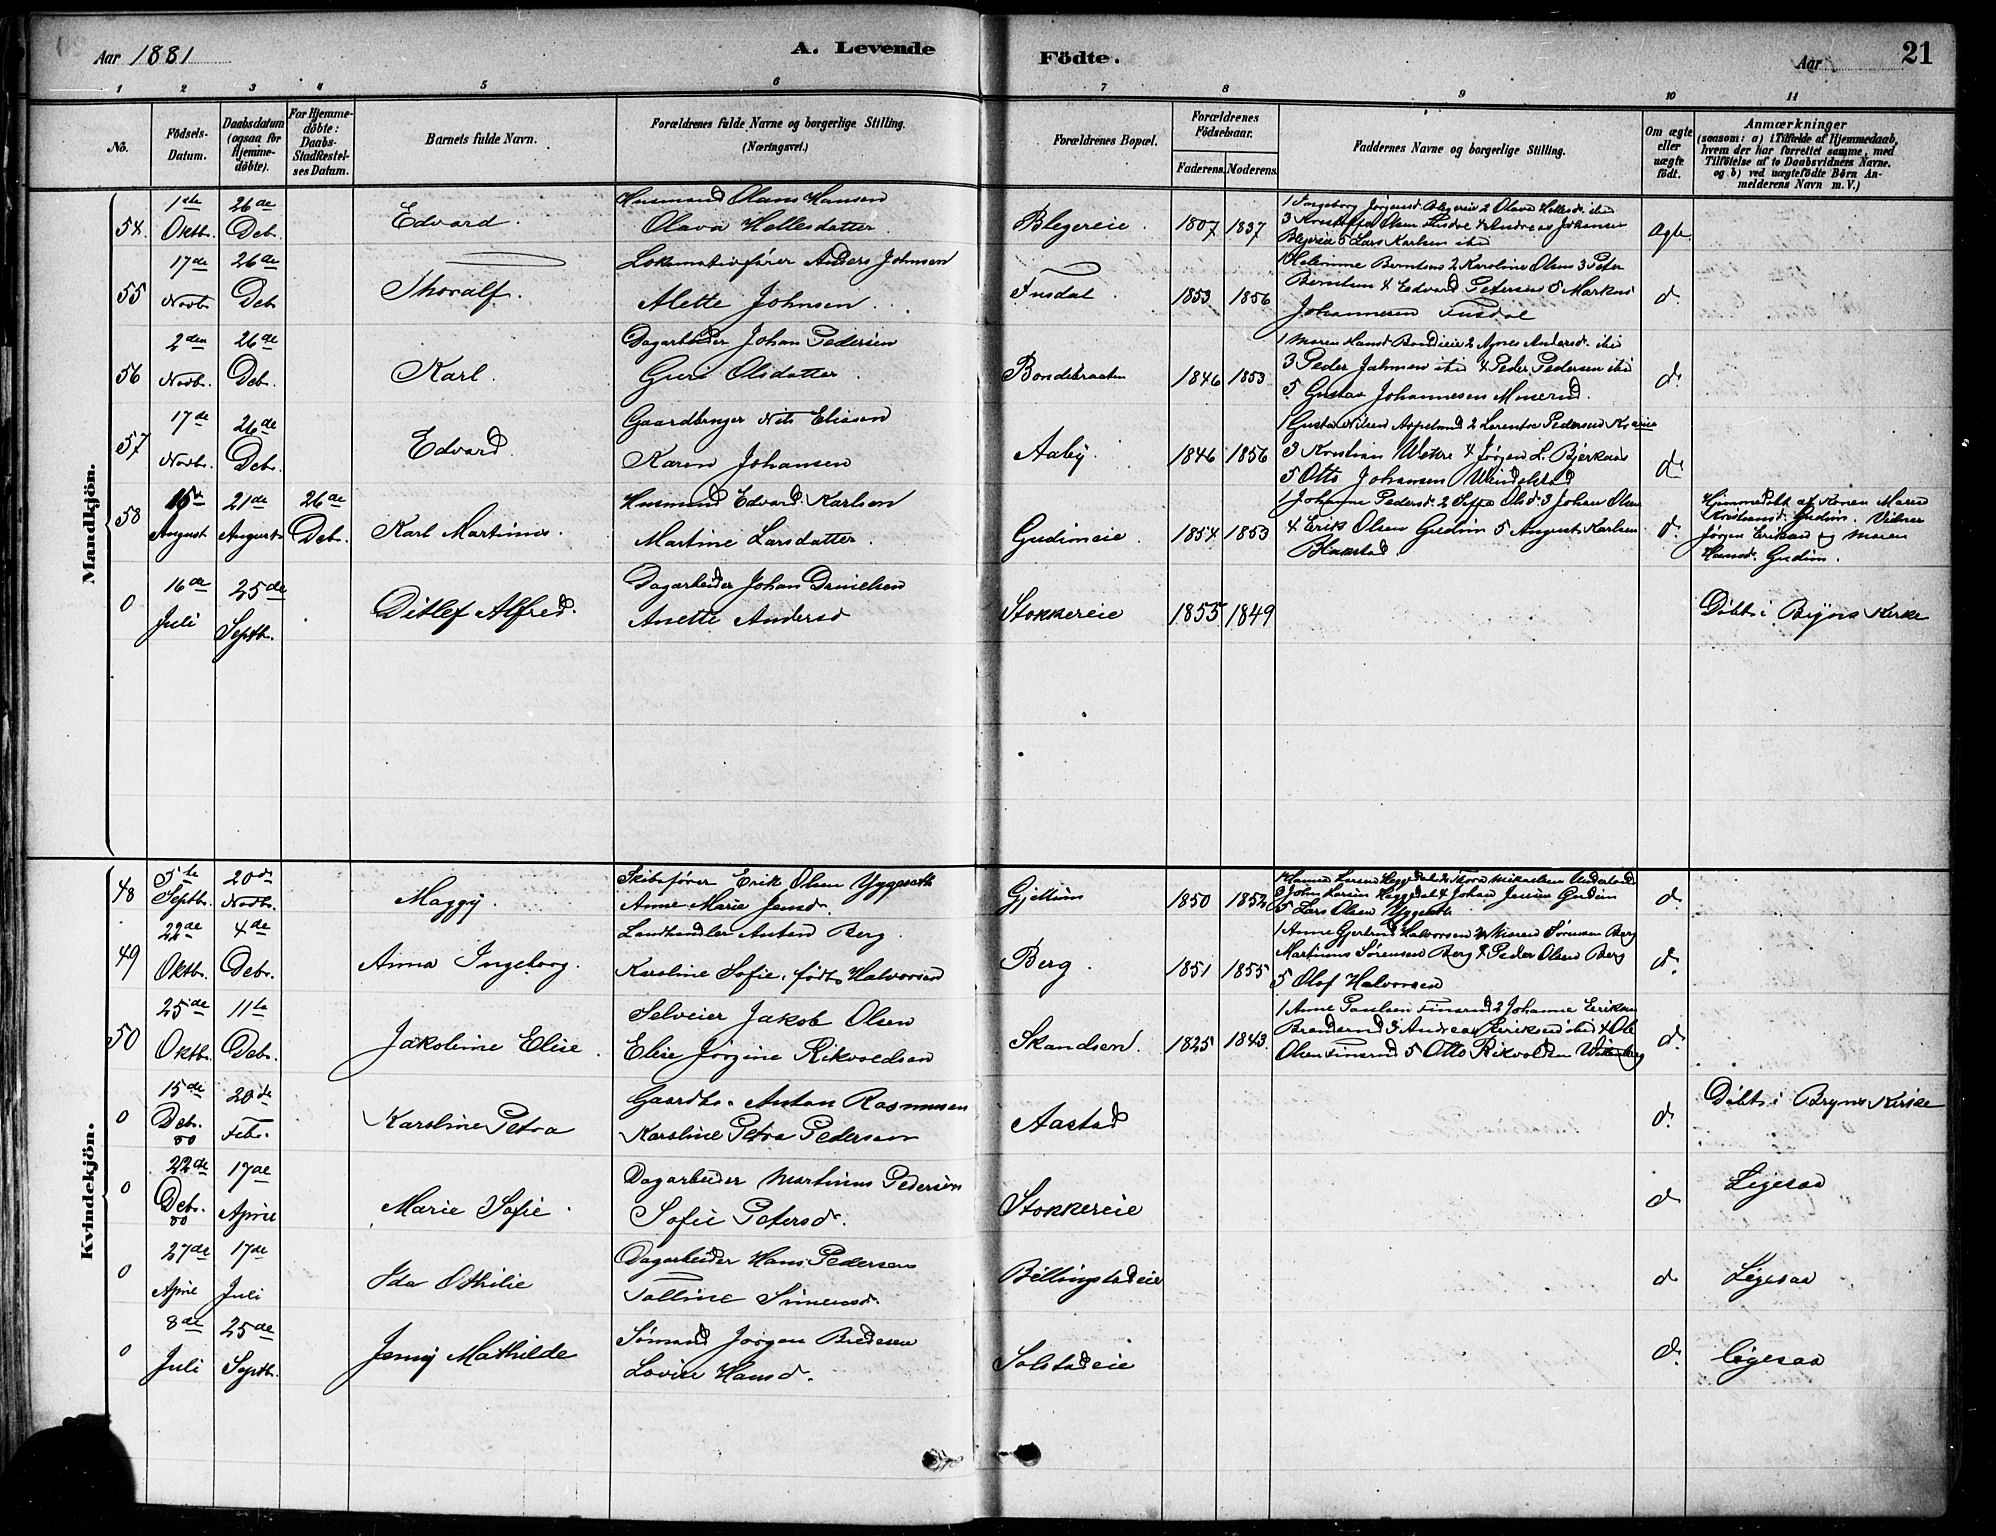 Aar 1881
A. Levende
Födte.
Aar
21
1 2 3 4 5 6 7 8 9 10 11
No.
Födsels-
Datum.
Daabsdatum
(ogsaa för
Hjemme-
döbte).
For Hjemme-
döbte:
Daabs-
Stadfestel-
ses Datum.
Barnets fulde Navn.
Forældrenes fulde Navne og borgerlige Stilling.
(Næringsvei.)
Forældrenes Bopæl.
Forældrenes
Födselsaar.
Faderens. Moderens.
Faddernes Navne og borgerlige Stilling.
Om ægte
eller
uægte
födt.
Anmærkninger
(saasom: a) i Tilfælde af Hjemmedaab,
hvem der har forrettet samme, med
Tilföielse af to Daabsvidners Navne.
og b) ved uægtefödte Börn An-
melderens Navn m. V.)
Mandkjön.
54. 1ste Oktb. 26de Deb. Edvard. Husmand Olaus Hansen
Olava Hellesdatter. Blegereie. 1807 1837
1 Ingeborg Jørgensd. Blegereie 2 Olava Hellesd. ibid
3 Kristoffer Olsen 4 Andreas Johansen
Blegereie 5 Lars Karlsen ibid
ægte
55 17de Novb. 26de Deb. Thoralf. Lokomotivfører Anders Johnsen
Alette Johnsen. Fusdal. 1853 1856
Berntsen 2 Karoline Olsen 3 Peter
Berntsen 4 Edvard Petersen 5 Markus
Johannesen Fusdal
d.
56 2den Novb. 26de Deb. Karl. Dagarbeider Johan Pedersen
Guri Olsdatter. Bondebraaten 1846 1853
1 Maren Hansd. Bondieie 2 Agnes Andersd. ibid
3 Peder Jahnsen ibid 4 Peder Pedersen ibid
5 Gustav Johannesen
d.
57 17de Novb. 26de Deb. Edvard. Gaardbruger Nils Eliasen
Karen Johansen Aaby. 1846 1856
1 Gusta Nilsen 2 Lorentse Pedersen
3 Kristian Wettre 4 Jørgen L. Bjerkaas
5 Otto Johansen Wendelstad
d.
58 15de August 21de August 26de Deb. Karl Martinus Husmand Edvard Karlsen
Martine Larsdatter. Gudimeie. 1854 1853
1 Johanne Pedersd. 2 Olsd. 3 Johan Olsen
4 Erik Olsen Gudim 5 August Karlsen
Blakstad.
d. Hjemmedøbt af Konen Maren
Kristiansd. Gudim. Vidner
Jørgen Eriksen og Maren
Hansd. Gudim.
0 16de Juli 25de Septb. Ditlef Alfred. Dagarbeider Johan Danielsen
Anette Andersd Stokkereie 1855 1849 Døbt i Bryns Kirke
Kvindekjön.
48 5te Septb. 20de Novb. Maggy. Skibsfører Erik Olsen Yggeseth
Anne Marie Jensd. Gjellum 1850 1852
1 Hanna Larsen Heggedal 2 Thora Mikaelsen
3 John Larsen Heggedal 4 Johan Jensen Gudim
5 Lars Olsen Yggeseth
d.
49 22de Oktb. 4de Deb. Anna Ingeborg. Landhandler Anton Berg.
Karoline Sofie, født Halvorsen Berg. 1851 1855
1 Anne Gjertrud Halvorsen 2 Maren Sørensen Berg
Martinus Sørensen Berg 4 Peder Olsen Berg
5 Olof Halvorsen
d.
50 25de Oktb. 11te Deb. Jakobine Elise. Selveier Jakob Olsen
Elise Jørgine Rikvoldsen Skandsen. 1825 1843.
1 Anne Paulsen Finsrud 2 Johanne Eriksen
Brendsrud 3 Andreas Eriksen ibid 4 Ole
Olsen Finsrud 5 Otto Rikvoldsen
d.
0 15de Deb. 80 20de Feb. Karoline Petra Gaardb. Anton Rasmusen
Karoline Petra Pedersen Aastad d. Døbt i Bryns Kirke
0 22de Deb. 80 17de April Marie Sofie. Dagarbeider Martinus Pedersen
Sofie Petersd. Stokkereie d. Ligesaa
0 27de April 17de Juli Ida Othilie Dagarbeider Hans Pedersen
Tolline Simensd. Billingstadeie d. Ligesaa
0 8de Juli 25de Septb. Jenny Mathilde Sømand Jørgen Bredesen
Lovise Hansd. Solstadeie d. Ligesaa